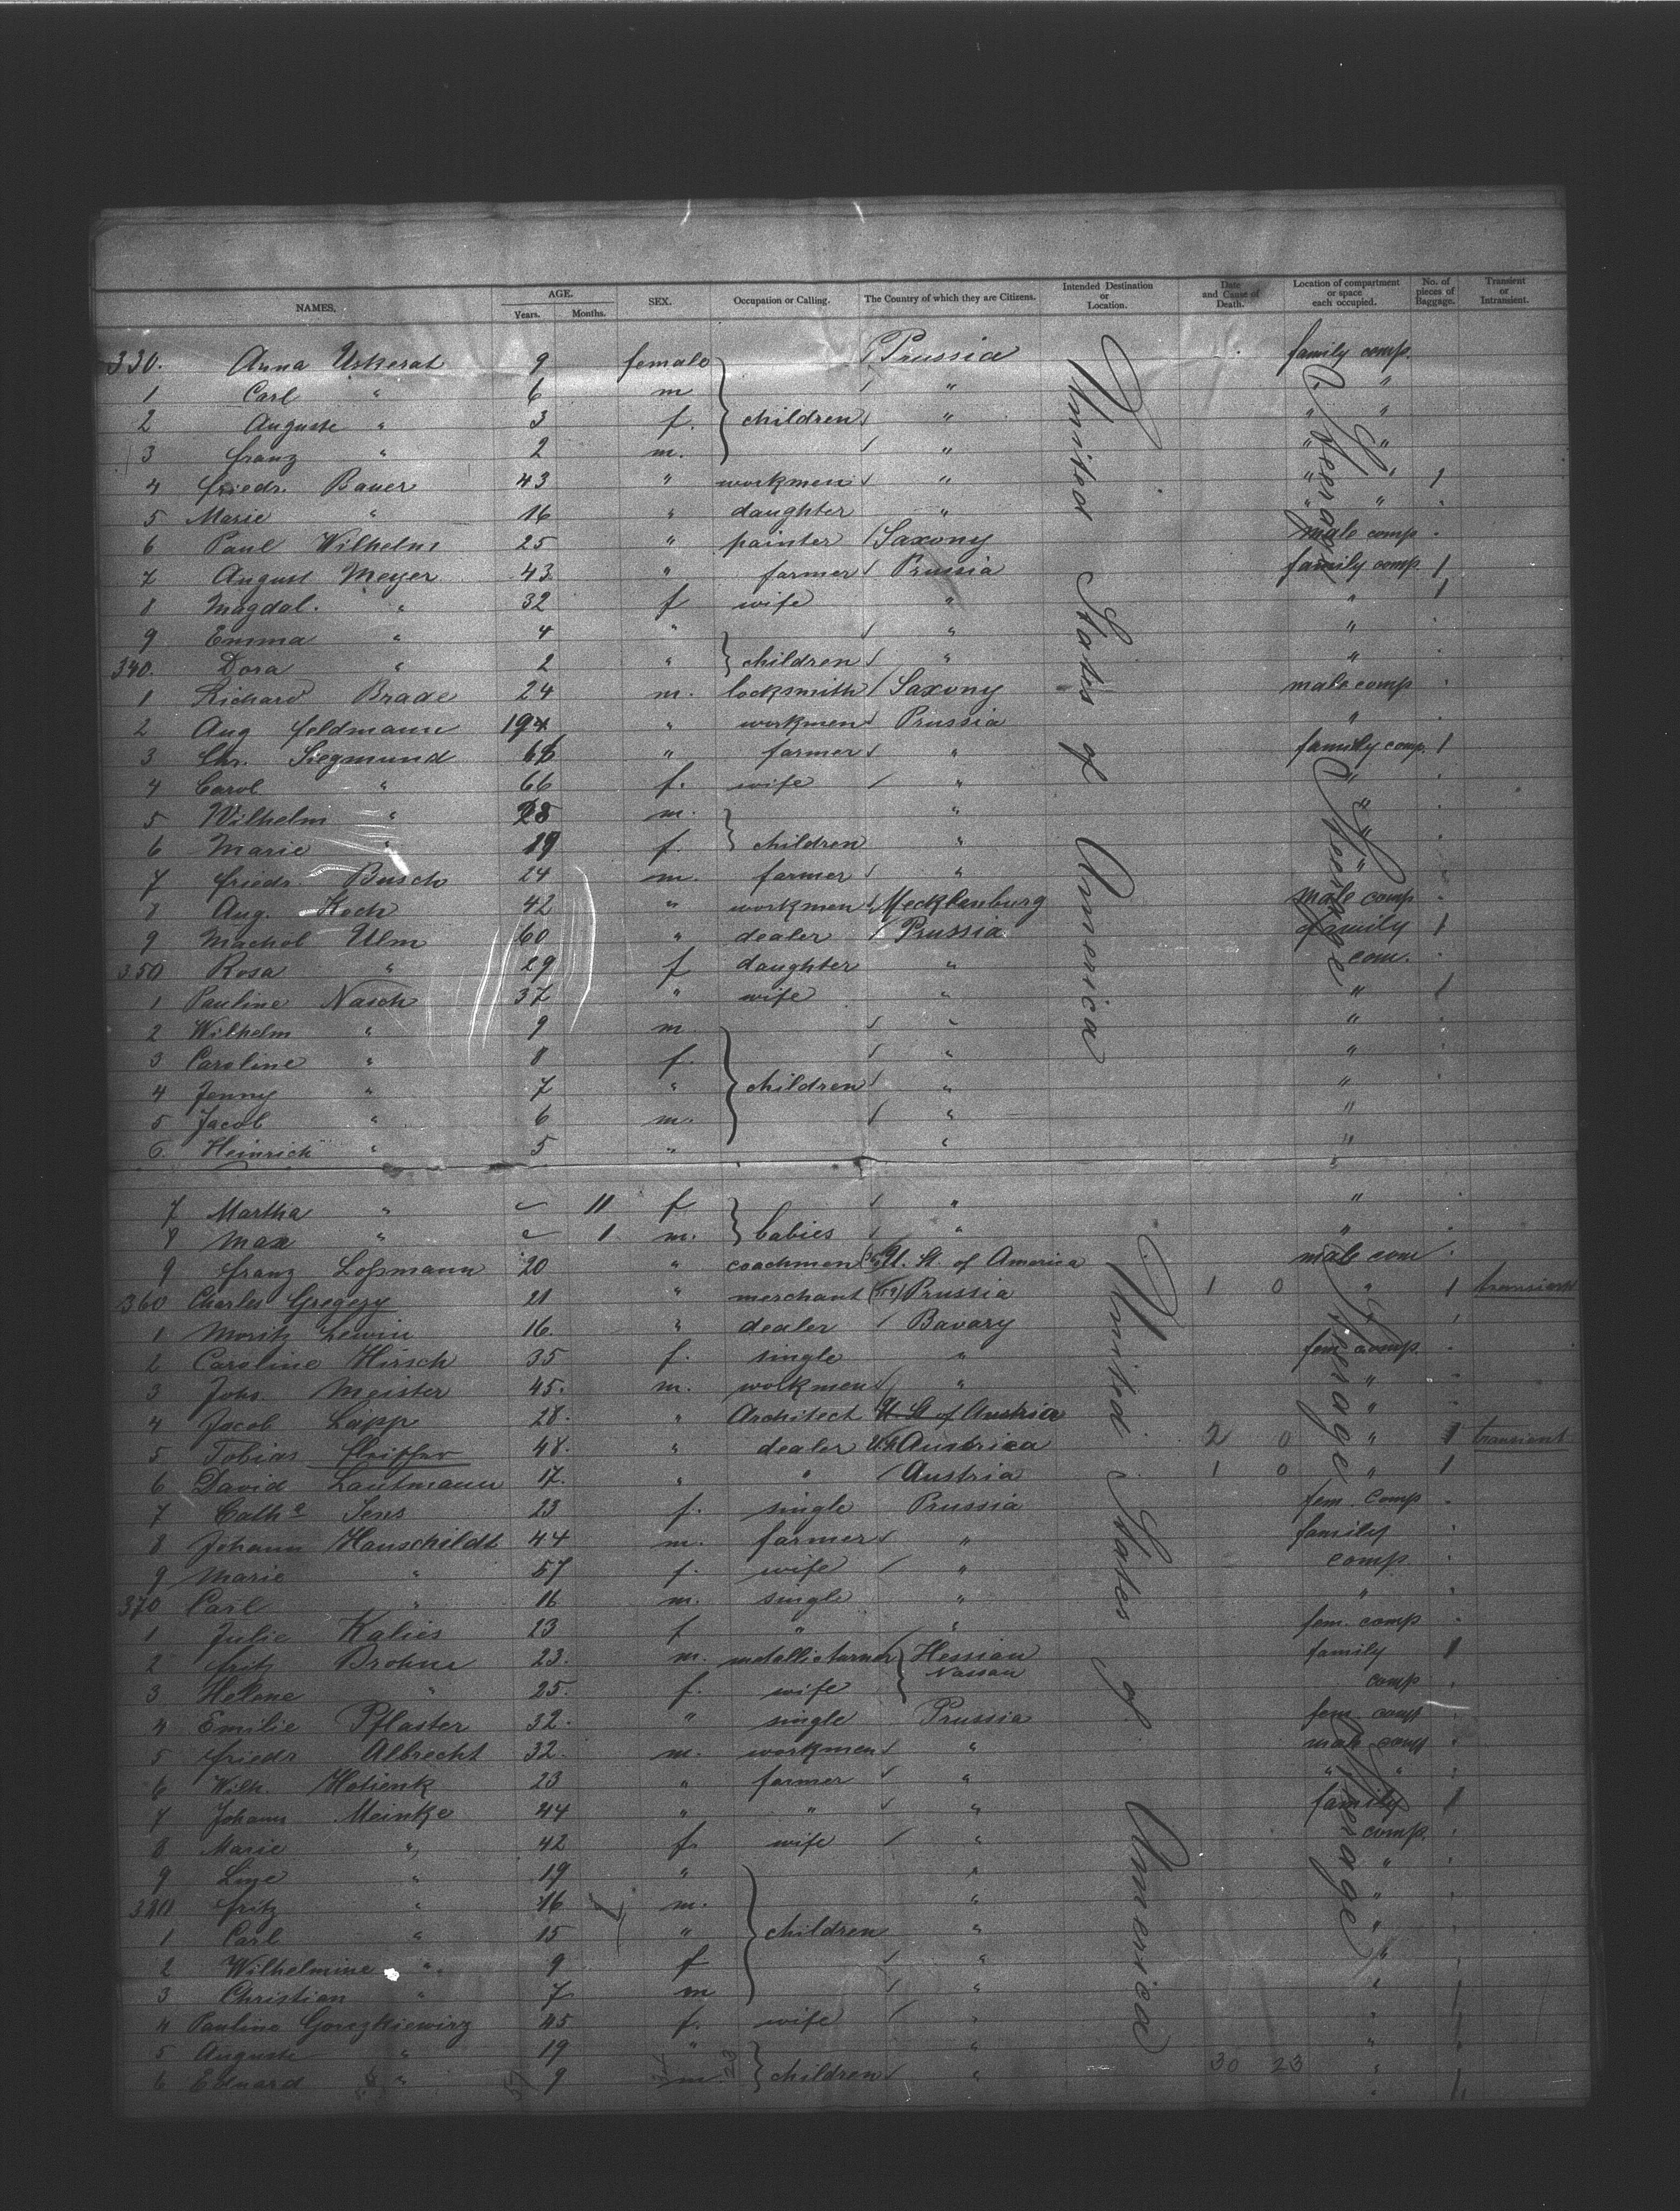 NAMES. AGE. Years. Months. SEX. Occupation or Calling. The Country of which they are Citizens. Intended Destination or Location. Date and Cause of Death. Location of compartment or space each occupied. No. of pieces of Baggage. Transient or Intransient.
330. Anna Uskerat 9 female Prussia family comp.
1 Carl " 6 m " "
2 Auguste " 3 f. children " " "
3 franz " 2 m. " " "
4 friedr. Bauer 43 " workmen " " " 1
5 Marie " 16 " daughter " " "
6 Paul Wilhelm 25 " painter Saxony male comp
7 August Meyer 43 " farmer Prussia family comp 1
8 Magdal. " 32 f wife " "
9 Emma " 4 " " "
340. Dora " 2 " children " "
1 Richard Brade 24 m. locksmith Saxony male comp
2 Aug feldmann 19 " workmen Prussia "
3 Chr. Siegmund " farmer " family comp. 1
4 Carol " 66 f. wife " "
5 Wilhelm " 28 m. " "
6 Marie " 19 f. children " "
7 friedr. Busch 24 m. farmer "
8 Aug. Koch 42 " workmen Mecklenburg male comp
9 Machol Ulm 60 " dealer Prussia family 1
350 Rosa " 29 f daughter " com.
1 Pauline Nasch 37 " wife " " 1
2 Wilhelm " 9 m " "
3 Caroline " 8 f. " "
4 Jenny " 7 " children " "
5 Jacob " 6 m. " "
6 Heinrich " 5 " " "
7 Martha " 11 f " "
8 Max " 1 m. babies " "
9 franz Loßmann 20 " coachmen U. St. of America male com
360 Charles Gregezy 21 " merchant Prussia 1 0 " 1 transient
1 Moritz Lewin 16. " dealer Bavary
2 Caroline Hirsch 35 f. single " fem. comp.
3 Johs. Meister 45. m. workmen " "
4 Jacob Lapp 28. " Architect U. St of Austria "
5 Tobias 48. " dealer U. St Austrica 2 0 " 1 transient
6 David Lautmann 17. " " Austria 1 0 " 1
7 Cath.e Jens 23 f. single Prussia fem. comp
8 Johann Hauschildt 44 m. farmer " family
9 Marie " 57 f. wife " comp
370 Carl " 16 m. single " "
1 Julie Kalies 23 f " " fem. comp
2 fritz Brohm 23. m. metallicturner Hessian Nassau family 1
3 Helene " 25. f. wife comp
4 Emilie Pflaster 32. " single Prussia fem. comp
5 friedr Albrecht 32. m. workmen " male comp
6 Wilh. Hotienk 23 " farmer " " "
7 Johann Meinke 44 " " " family 1
8 Marie " 42 f. wife " comp.
9 Line " 19 " " "
380 fritz " 16 m. " "
1 Carl " 15 " children " "
2 Wilhelmine " 9 f " "
3 Christian " 7 m " "
4 Pauline Gorezkiewirz 45 f. wife " "
5 Auguste " 19 " " "
6 Eduard " 9 m. children " 30 23 "
United States of America
Steerage
Steerage
United States of America
Steerage
Steerage